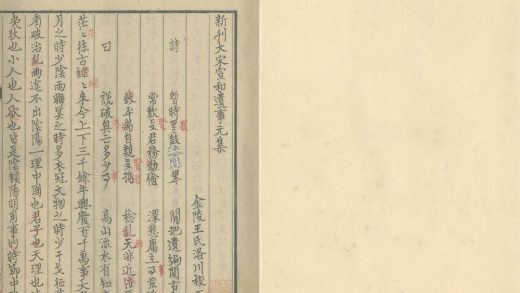 新刊大宋宣和遺事元集
金陵王氏洛川校正
詩 暫時罷鼓膝間琴 閒把遺編閱古
常歎賢君務勤儉 深悲庸主事荒
致平端自親賢哲 稔亂無非近佞
曰 說破興亡多少事 高山流水有知
茫茫往古繼繼來今上下三千餘年興廢百千萬事大
月之時少陰雨晦冥之時多衣冠文物之時少干戈征
看破治亂兩途不出陰陽一理中國也君子也天理也
夷狄也小人也人欲也皆是陰類陽明用事的時節中